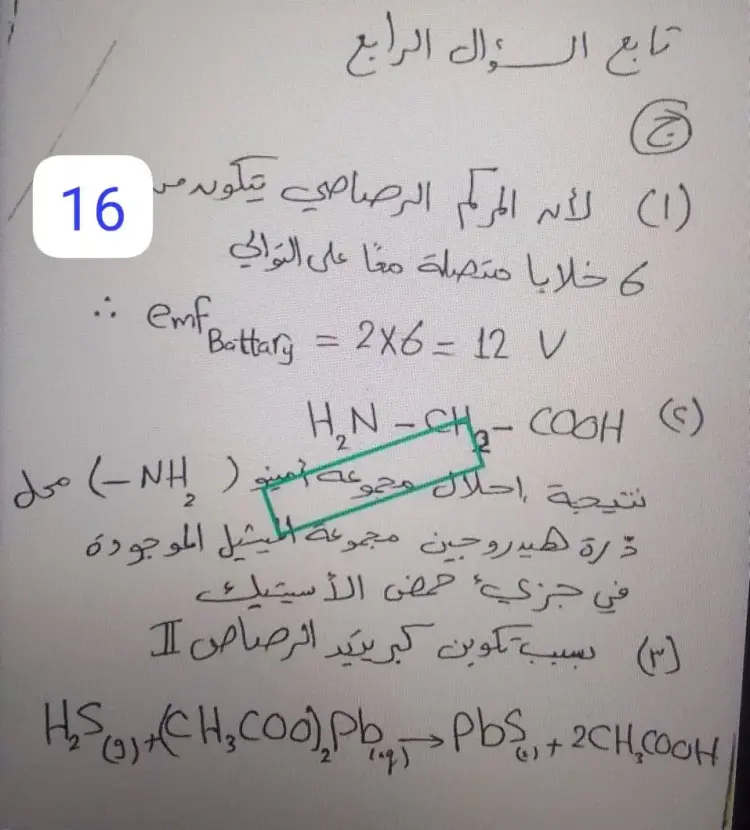 تابع السؤال الرابع
ج
16
(١) لأنه المركم الرصاصي يتكون من
6 خلايا متصلة معًا على التوالي
∴ emf Battary = 2X6 = 12 V
(٢) H₂N – CH₂ – COOH
نتيجة إحلال مجموعة أمينو (–NH₂) محل
ذرة هيدروجين مجموعة الميثيل الموجودة
في جزيء حمض الأسيتيك
(٣) بسبب تكوين كبريتيد الرصاص II
H₂S(g) + (CH₃COO)₂Pb(aq) → PbS(s) + 2CH₃COOH